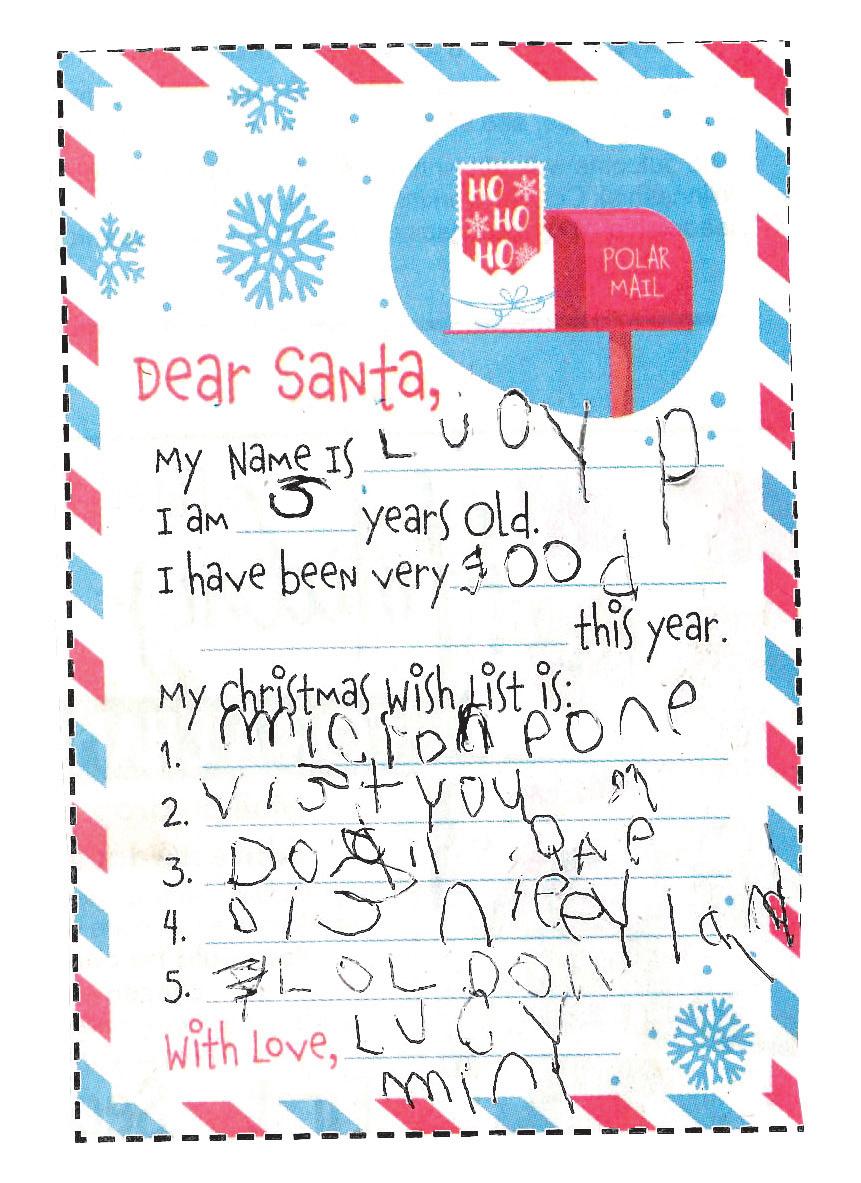 HO
HO
HO
POLAR
MAIL
Dear Santa,
My Name Is LUCY P
I am 5 years old.
I have been very good
this year.
My Christmas Wish List is:
1. micropone
2. Visit you
3. DO
4. Dis land
5. LOL DOll
With Love, LUCY